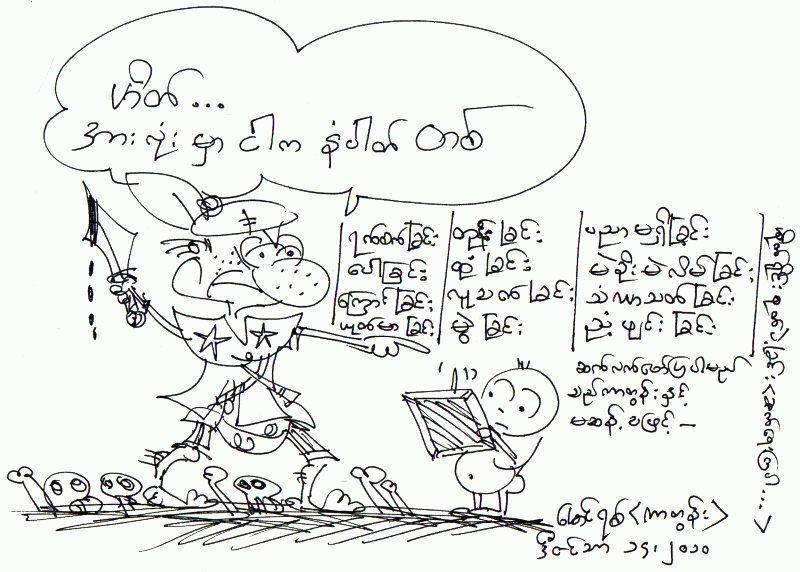 ဟိတ် ...
အားလုံးမှာ ငါက နံပါတ် တစ်
ရက်စက်ခြင်း
ပေါခြင်း
ကြောင်ခြင်း
ယုတ်မာခြင်း
တုန်းခြင်း
ထုံခြင်း
လူသတ်ခြင်း
မွဲခြင်း
ပညာမရှိခြင်း
မဲခိုးမဲလိမ်ခြင်း
သံဃာသတ်ခြင်း
ညှဉ်းပျင်းခြင်း
ဆက်လက်ဖော်ပြပါမည်
သည်ကာတွန်းနှင့်
မဆန့်သဖြင့် —
မောင်ရစ် <ကာတွန်း>
ဒီဇင်ဘာ ၁၄၊ ၂၀၁၀